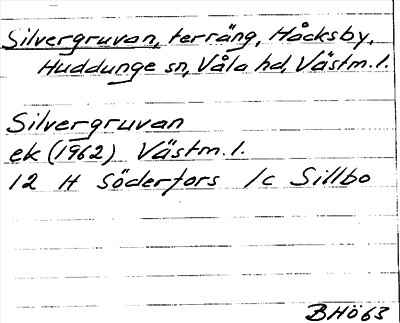 Silvergruvan, terräng, Håcksby,
Huddunge sn, Våla hd, Västm. l.
Silvergruvan
ek (1962) Västm. l.
12 H Söderfors 1c Sillbo
BHö63